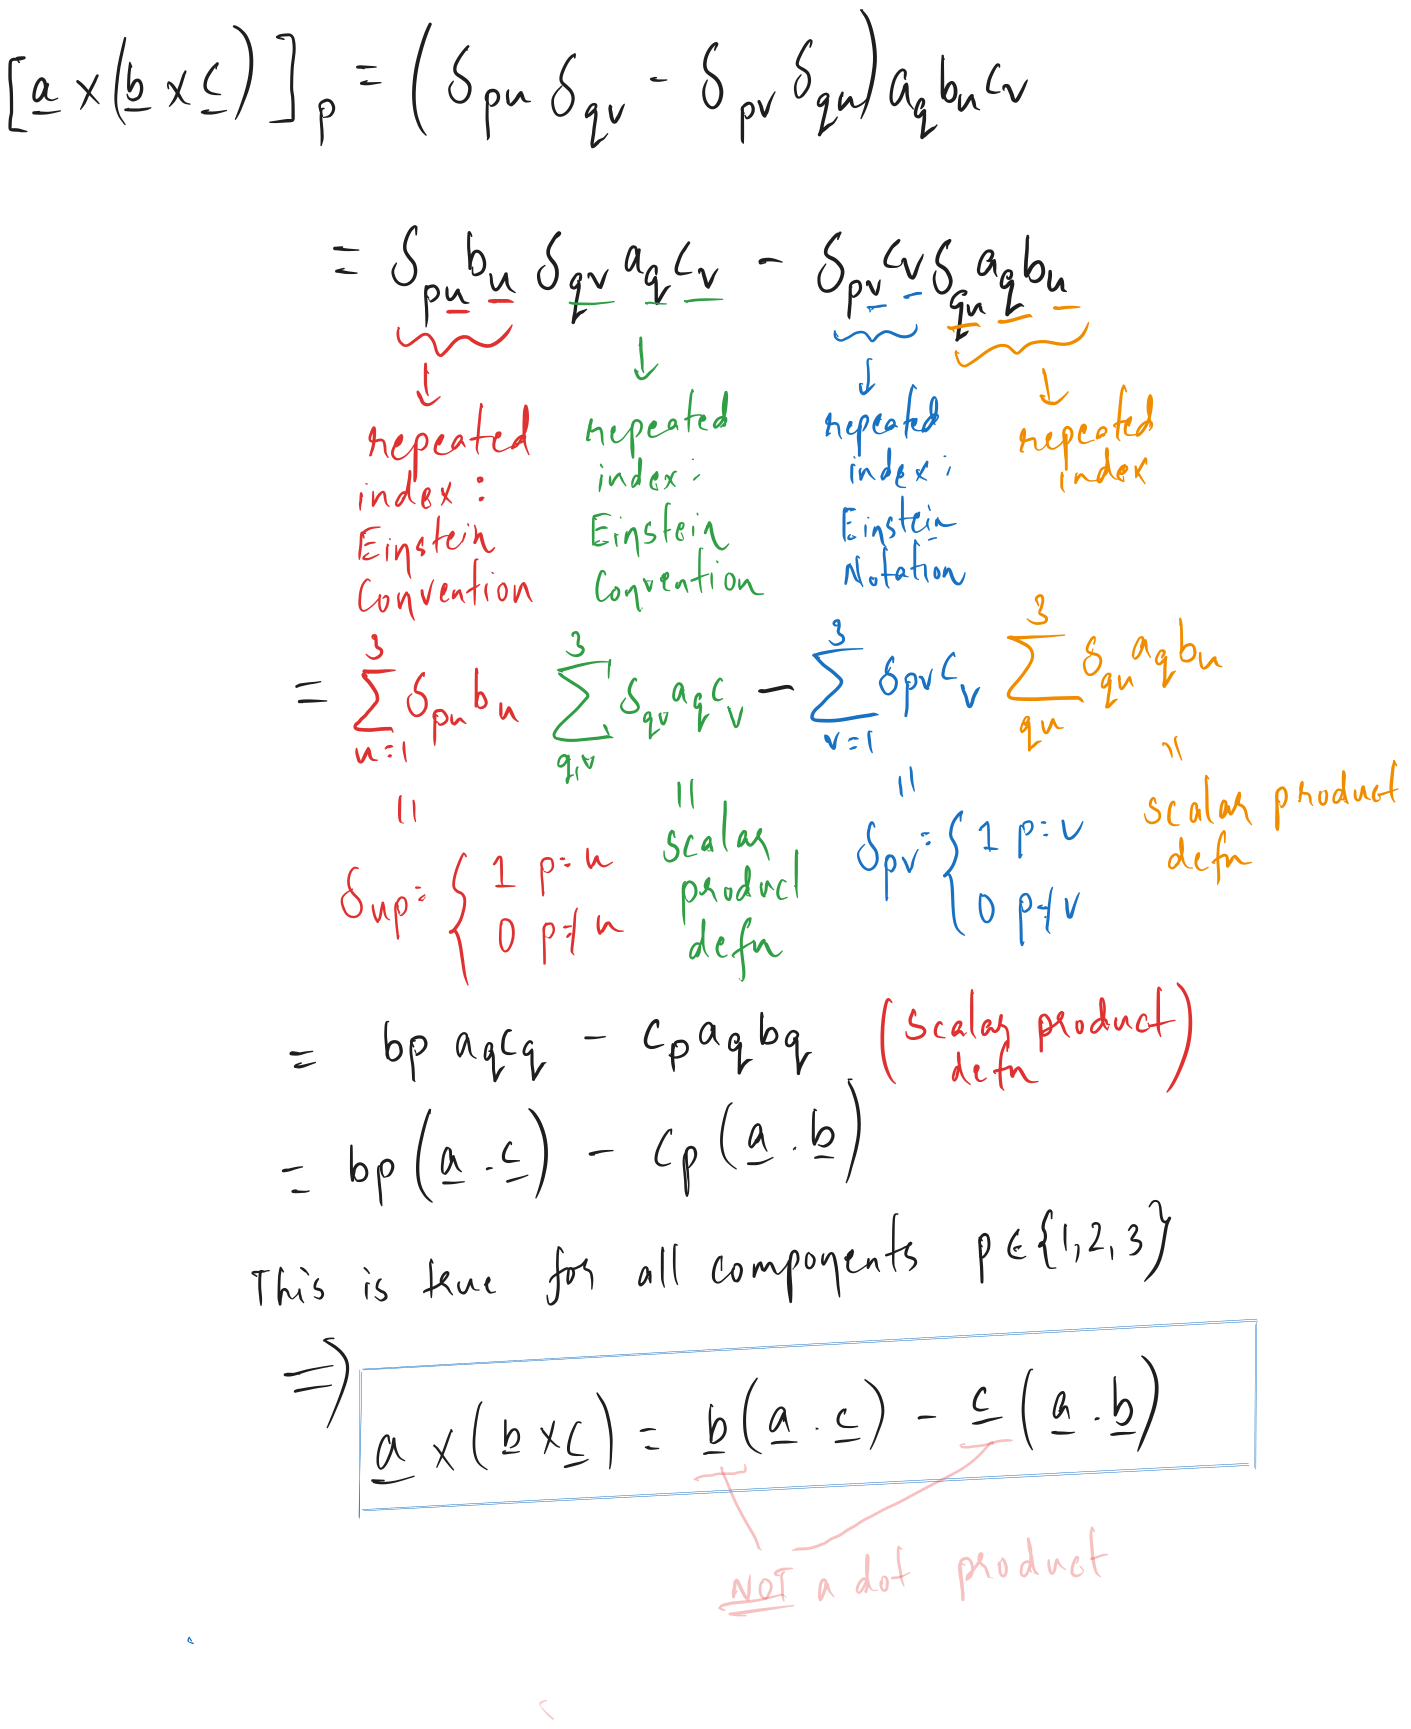 [a × (b × c)]p = (δpu δqv - δpv δqu) aq bu cv
= δpu bu δqv aq cv - δpv cv δqu aq bu
repeated index : Einstein Convention
repeated index : Einstein Convention
repeated index : Einstein Notation
repeated index
= 3∑u=1 δpu bu 3∑q,v δqv aq cv - 3∑v=1 δpv cv 3∑qu δqu aq bu
=
δup = { 1 p=u
0 p≠u
=
scalar product defn
=
δpv = { 1 p=v
0 p≠v
=
scalar product defn
= bp aq cq - cp aq bq (scalar product defn)
= bp (a . c) - cp (a . b)
This is true for all components p ∈ {1, 2, 3}
⇒ a × (b × c) = b (a . c) - c (a . b)
NOT a dot product